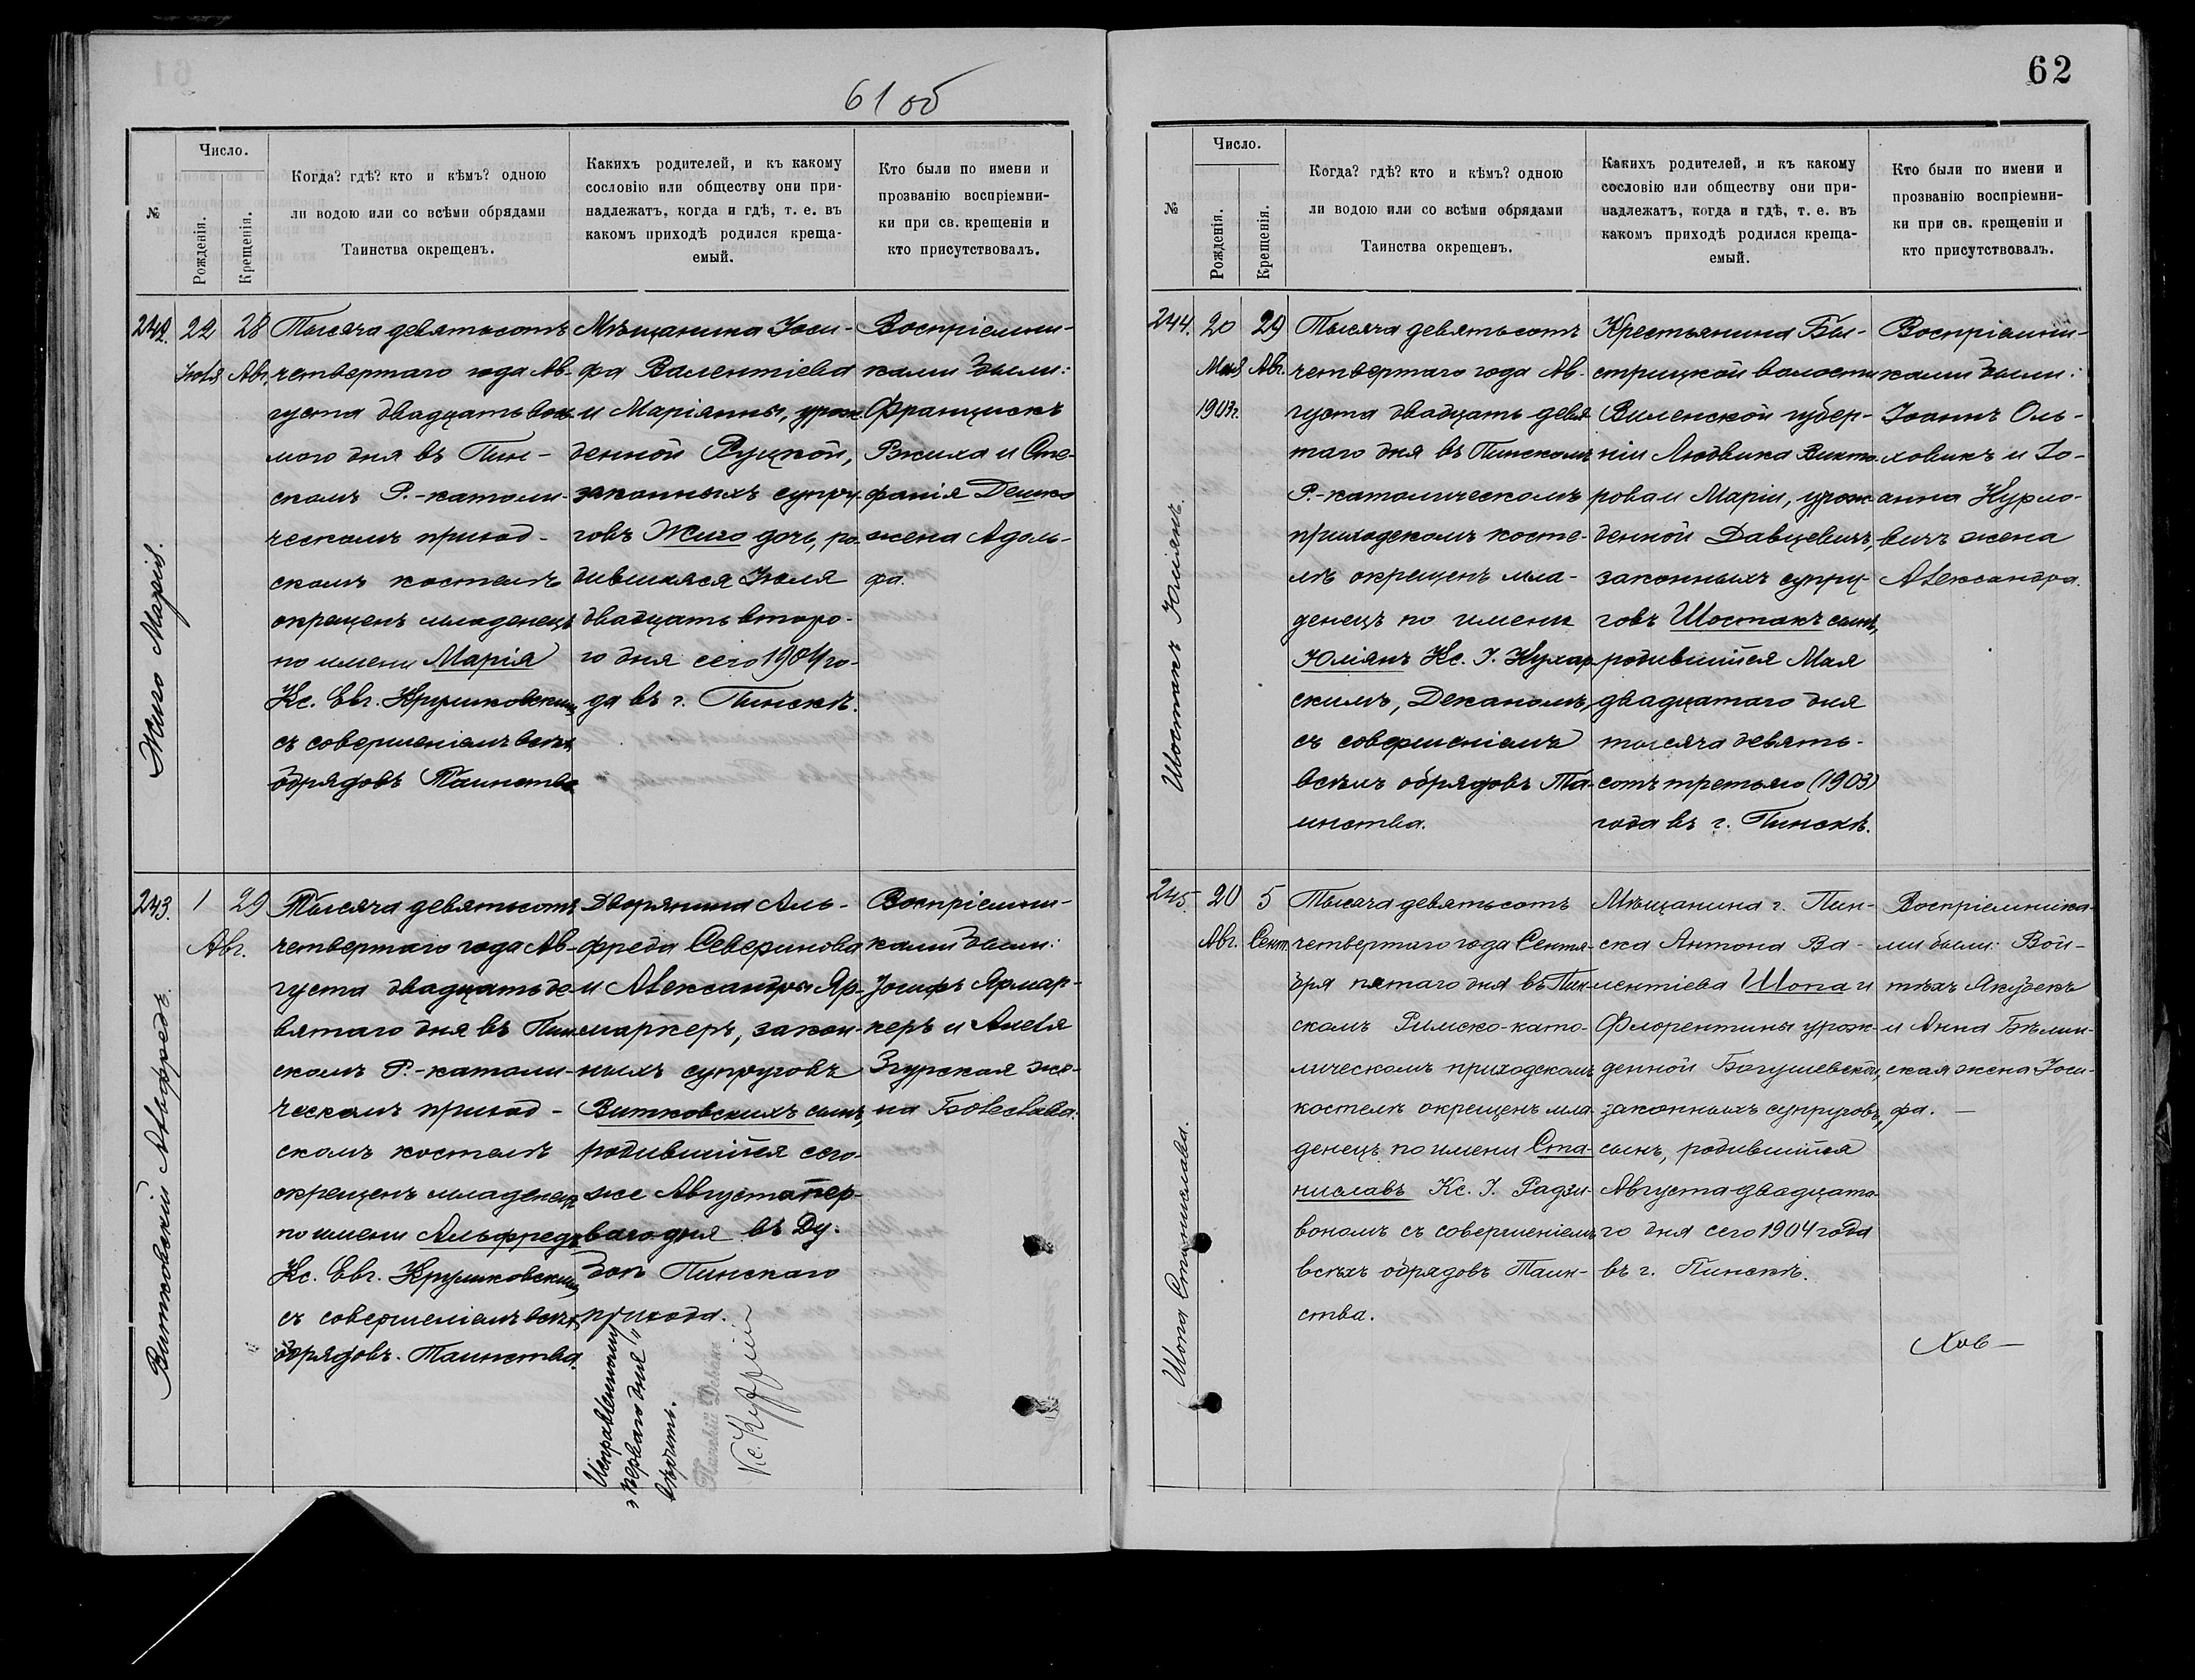 61 об
№
Число.
Рожденія.
Крещенія.
Когда? гдѣ? кто и кѣмъ? одною
ли водою или со всѣми обрядами
Таинства окрещенъ.
Какихъ родителей, и къ какому
сословію или обществу они при-
надлежатъ, когда и гдѣ, т. е. въ
какомъ приходѣ родился креща-
емый.
Кто были по имени и
прозванію воспріемни-
ки при св. крещеніи и
кто присутствовалъ.
Жиго Марія.
242.
22
Іюля
28
Авг.
Тысяча девятьсотъ
четвертаго года Ав-
густа двадцать вось-
мого дня въ Пин-
скомъ Р.-католи-
ческомъ приход-
скомъ костелѣ
окрещенъ младенецъ
по имени Марія
Кс. Евг. Крушковскимъ
съ совершеніемъ всѣхъ
обрядовъ Таинства
Мѣщанина Іоси-
фа Валентіева
и Маріанны, урож-
денной Руцкой,
законныхъ супру-
говъ Жиго дочь, ро-
дившаяся Іюля
двадцать второ-
го дня сего 1904 го-
да въ г. Пинскѣ.
Воспріемни-
ками были:
Францискъ
и Сте-
фанія Дешко
жена Адоль-
фа.
Витковскій Альфредъ.
243.
1
Авг.
29
Тысяча девятьсотъ
четвертаго года Ав-
густа двадцать де-
вятаго дня въ Пин-
скомъ Р.-католи-
ческомъ приход-
скомъ костелѣ
окрещенъ младенецъ
по имени Альфредъ
Кс. Евг. Крушковскимъ
съ совершеніемъ всѣхъ
обрядовъ Таинства.
Дворянина Аль-
фреда Северинова
и Александры Яр-
маркеръ, закон-
ныхъ супруговъ
Витковскихъ сынъ,
родившійся сего-
же Августа пер-
ваго дня въ Ду-
боѣ Пинскаго
прихода.
Исправленному
„перваго дня"
вѣрить.
Пинскій Деканъ
Кс.
Воспріемни-
ками были:
Іосифъ Ярмар-
керъ и Анеля
Згурская же-
на Болеслава.
62
№
Число.
Рожденія.
Крещенія.
Когда? гдѣ? кто и кѣмъ? одною
ли водою или со всѣми обрядами
Таинства окрещенъ.
Какихъ родителей, и къ какому
сословію или обществу они при-
надлежатъ, когда и гдѣ, т. е. въ
какомъ приходѣ родился креща-
емый.
Кто были по имени и
прозванію воспріемни-
ки при св. крещеніи и
кто присутствовалъ.
Шостакъ Юліянъ.
244.
20
Мая
1903г.
29
Авг.
Тысяча девятьсотъ
четвертаго года Ав-
густа двадцать девя-
таго дня въ Пинскомъ
Р.-католическомъ
приходскомъ косте-
лѣ окрещенъ мла-
денецъ по имени
Юліянъ Кс. І. Кухар-
скимъ, Деканомъ,
съ совершеніемъ
всѣхъ обрядовъ Та-
инства.
Крестьянина Бы-
стрицкой волости
Виленской губер-
ніи Людвика Викто-
рова и Маріи, урож-
денной Давцевичъ,
законныхъ супру-
говъ Шостакъ сынъ,
родившійся Мая
двадцатаго дня
тысяча девять-
сотъ третьяго (1903)
года въ г. Пинскѣ.
Воспріемни-
ками были:
Іоаннъ Оль-
ховикъ и Іо-
анна Курло-
вичъ жена
Александра.
Шопа Станиславъ.
245.
20
Авг.
5
Сент.
Тысяча девятьсотъ
четвертаго года Сентя-
бря пятаго дня въ Пин-
скомъ Римско-като-
лическомъ приходскомъ
костелѣ окрещенъ мла-
денецъ по имени Ста-
ниславъ Кс. І. Радзи-
вономъ съ совершеніемъ
всѣхъ обрядовъ Таин-
ства.
Мѣщанина г. Пин-
ска Антона Ва-
лентіева Шопа и
Флорентины урож-
денной Богушевской,
законныхъ супруговъ,
сынъ, родившійся
Августа двадцата-
го дня сего 1904 года
въ г. Пинскѣ.
Воспріемника-
ми были: Вой-
тѣхъ Якубекъ
и Анна Бѣлин-
ская жена Іоси-
фа. —